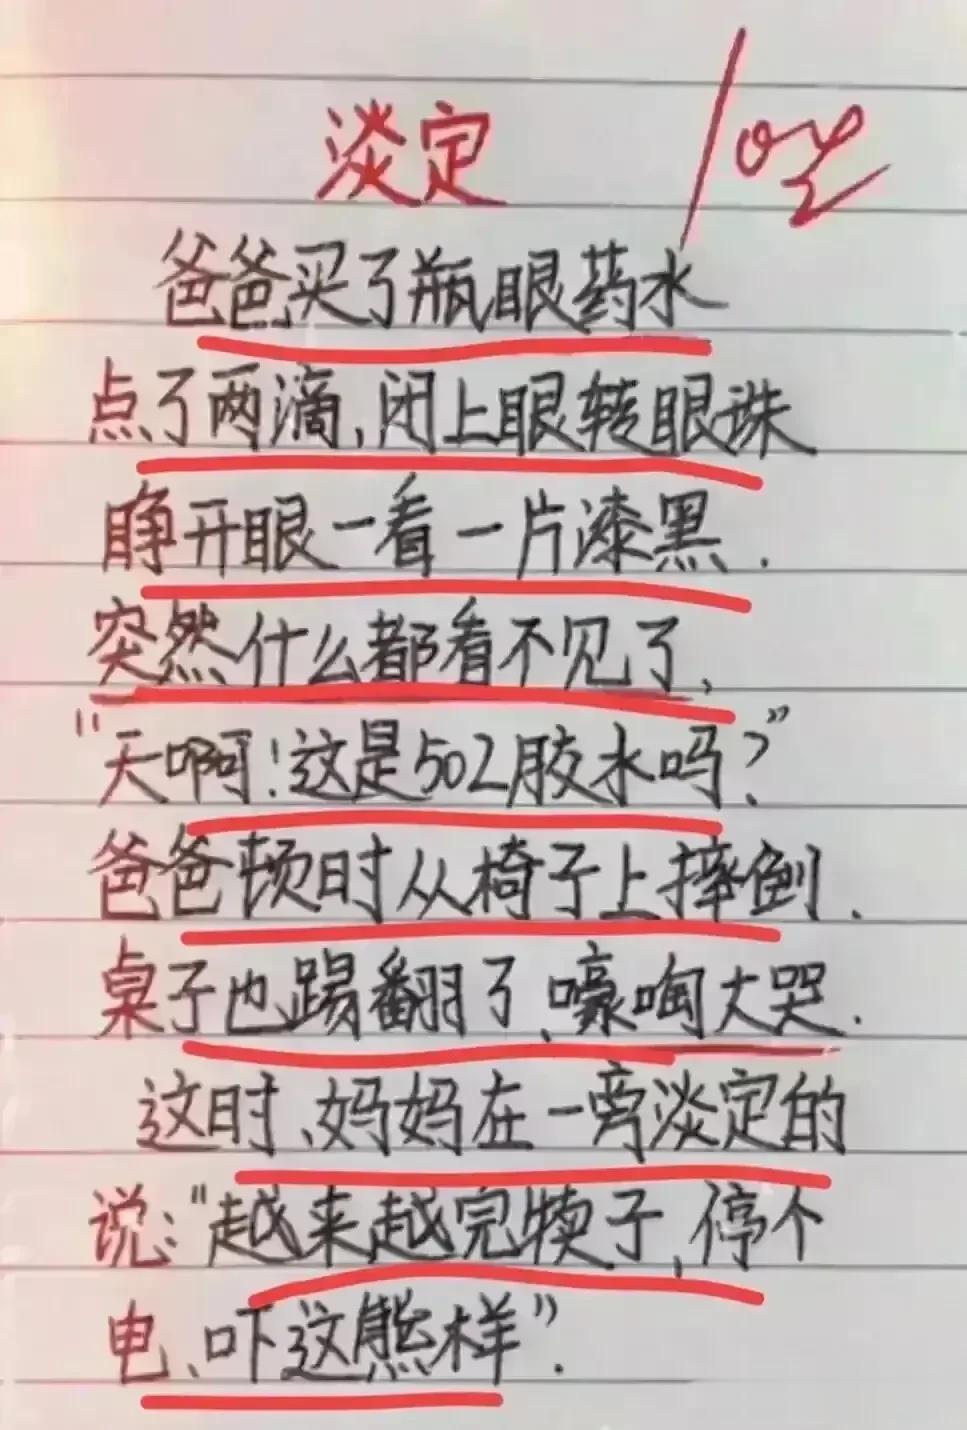 淡定
爸爸买了瓶眼药水
点了两滴,闭上眼转眼珠
睁开眼一看一片漆黑.
突然什么都看不见了,
"天啊!这是502胶水吗?"
爸爸顿时从椅子上摔倒.
桌子也踢翻了、嚎啕大哭.
这时、妈妈在一旁淡定的
说:"越来越完犊子,停个
电、吓这熊样".